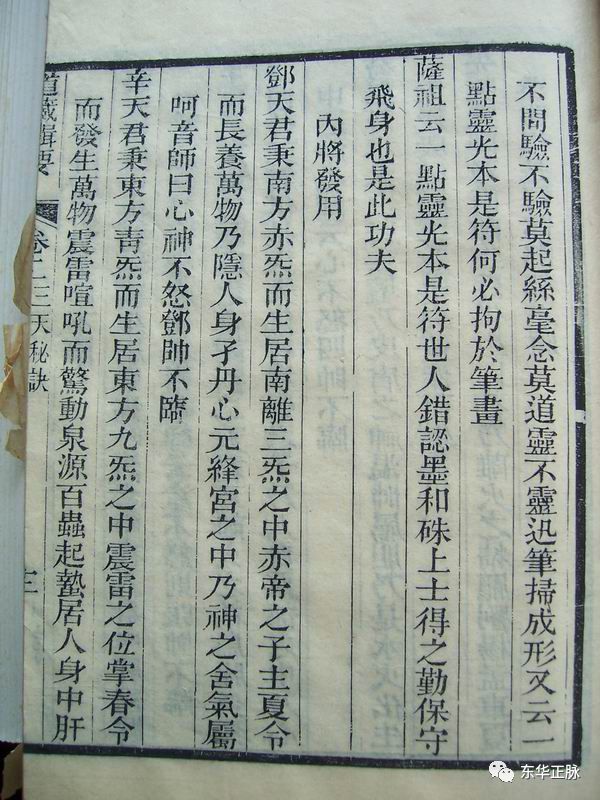 不問驗不驗莫起絲毫念莫道靈不靈迅筆掃成形又云一
點靈光本是符何必拘於筆畫
薩祖云一點靈光本是符世人錯認墨和硃上士得之勤保守
飛身也是此功夫
內將發用
鄧天君秉南方赤炁而生居南離三炁之中赤帝之子主夏令
而長養萬物乃隱人身于丹心元絳宮之中乃神之舍氣屬
呵音師曰心神不怒鄧帥不臨
辛天君秉東方青炁而生居東方九炁之中震雷之位掌春令
而發生萬物震雷喧吼而驚動泉源百蟲起蟄居人身中肝
道藏輯要
卷二三天秘訣
三
东华正脉